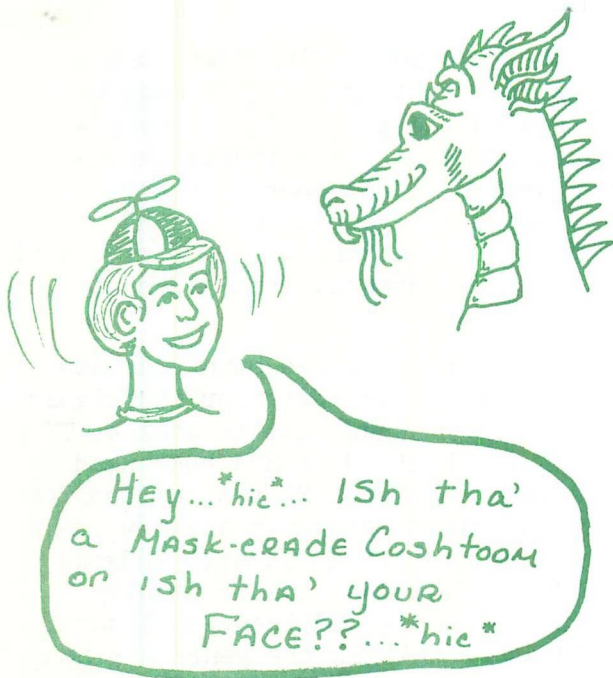 Hey...*hic*... Ish tha'
a Mask-erade Coshtoom
or ish tha' your
Face??...*hic*